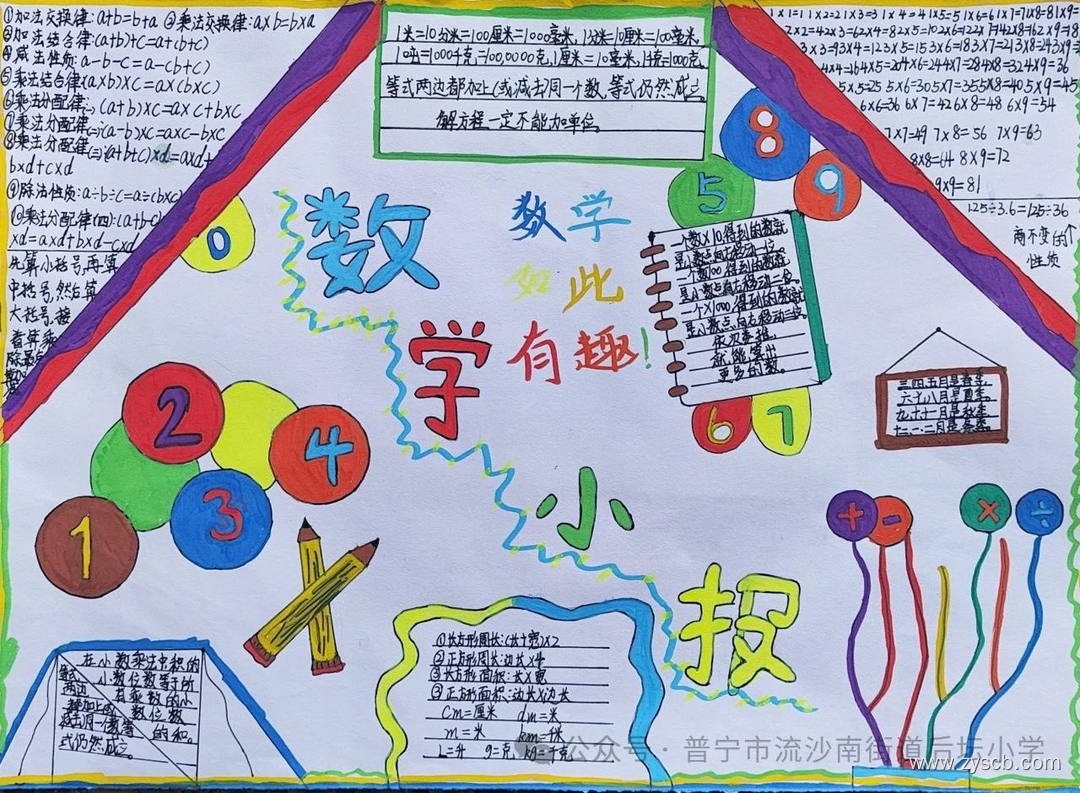 ①加法交换律:a+b=b+a ②乘法交换律:a×b=b×a
③加法结合律:(a+b)+c=a+(b+c)
④减法性质:a-b-c=a-(b+c)
⑤乘法结合律(a×b)×c=a×(b×c)
⑥乘法分配律(一):(a+b)×c=a×c+b×c
⑦乘法分配律(二):(a-b)×c=a×c-b×c
⑧乘法分配律(三):(a+b+c)×d=a×d+
b×d+c×d
⑨除法性质:a÷b÷c=a÷(b×c)
⑩乘法分配律(四):(a+b-c)
×d=a×d+b×d-c×d
先算小括号,再算
中括号,然后算
大括号,接
着算乘
1米=10分米=100厘米=1000毫米,1分米=10厘米=100毫米,
1吨=1000千克=1000000克,1厘米=10毫米,1千克=1000克,
等式两边都加上(或减去)同一个数,等式仍然成立。
解方程一定不能加单位。
1×1=1 1×2=2 1×3=3 1×4=4 1×5=5 1×6=6 1×7=7 1×8=8 1×9=
2×2=4 2×3=6 2×4=8 2×5=10 2×6=12 2×7=14 2×8=16 2×9=18
3×3=9 3×4=12 3×5=15 3×6=18 3×7=21 3×8=24 3×9=
4×4=16 4×5=20 4×6=24 4×7=28 4×8=32 4×9=36
5×5=25 5×6=30 5×7=35 5×8=40 5×9=45
6×6=36 6×7=42 6×8=48 6×9=54
7×7=49 7×8=56 7×9=63
8×8=64 8×9=72
9×9=81
125÷3.6=125÷36
商不变的
性质
数学小报
数学
如此
有趣!
0
8
5
9
一个数×10得到的数就
是小数点向右移动一位。
一个数×100得到的数就
是小数点向右移动二位。
一个×1000得到的数就
是小数点向右移动三位。
依次类推,
就能算出
更多的数。
6
7
三四五月是春季,
六七八月是夏季。
九十十一月是秋季
十二.一.二月是冬季。
2
4
3
1
+ - × ÷
在小数乘法中积的
小数位数等于所
有乘数的小
数位数
的和。
等式
两边
都加上(或
减去)同一个数等
式仍然成立
①长方形周长:(长+宽)×2
②正方形周长:边长×4
③长方形面积:长×宽
③正方形面积:边长×边长
cm=厘米 dm=分米
m=米 km=千米
L=升 g=克 kg=千克
公众号·普宁市流沙南街道后坛小学
www.zyscb.com